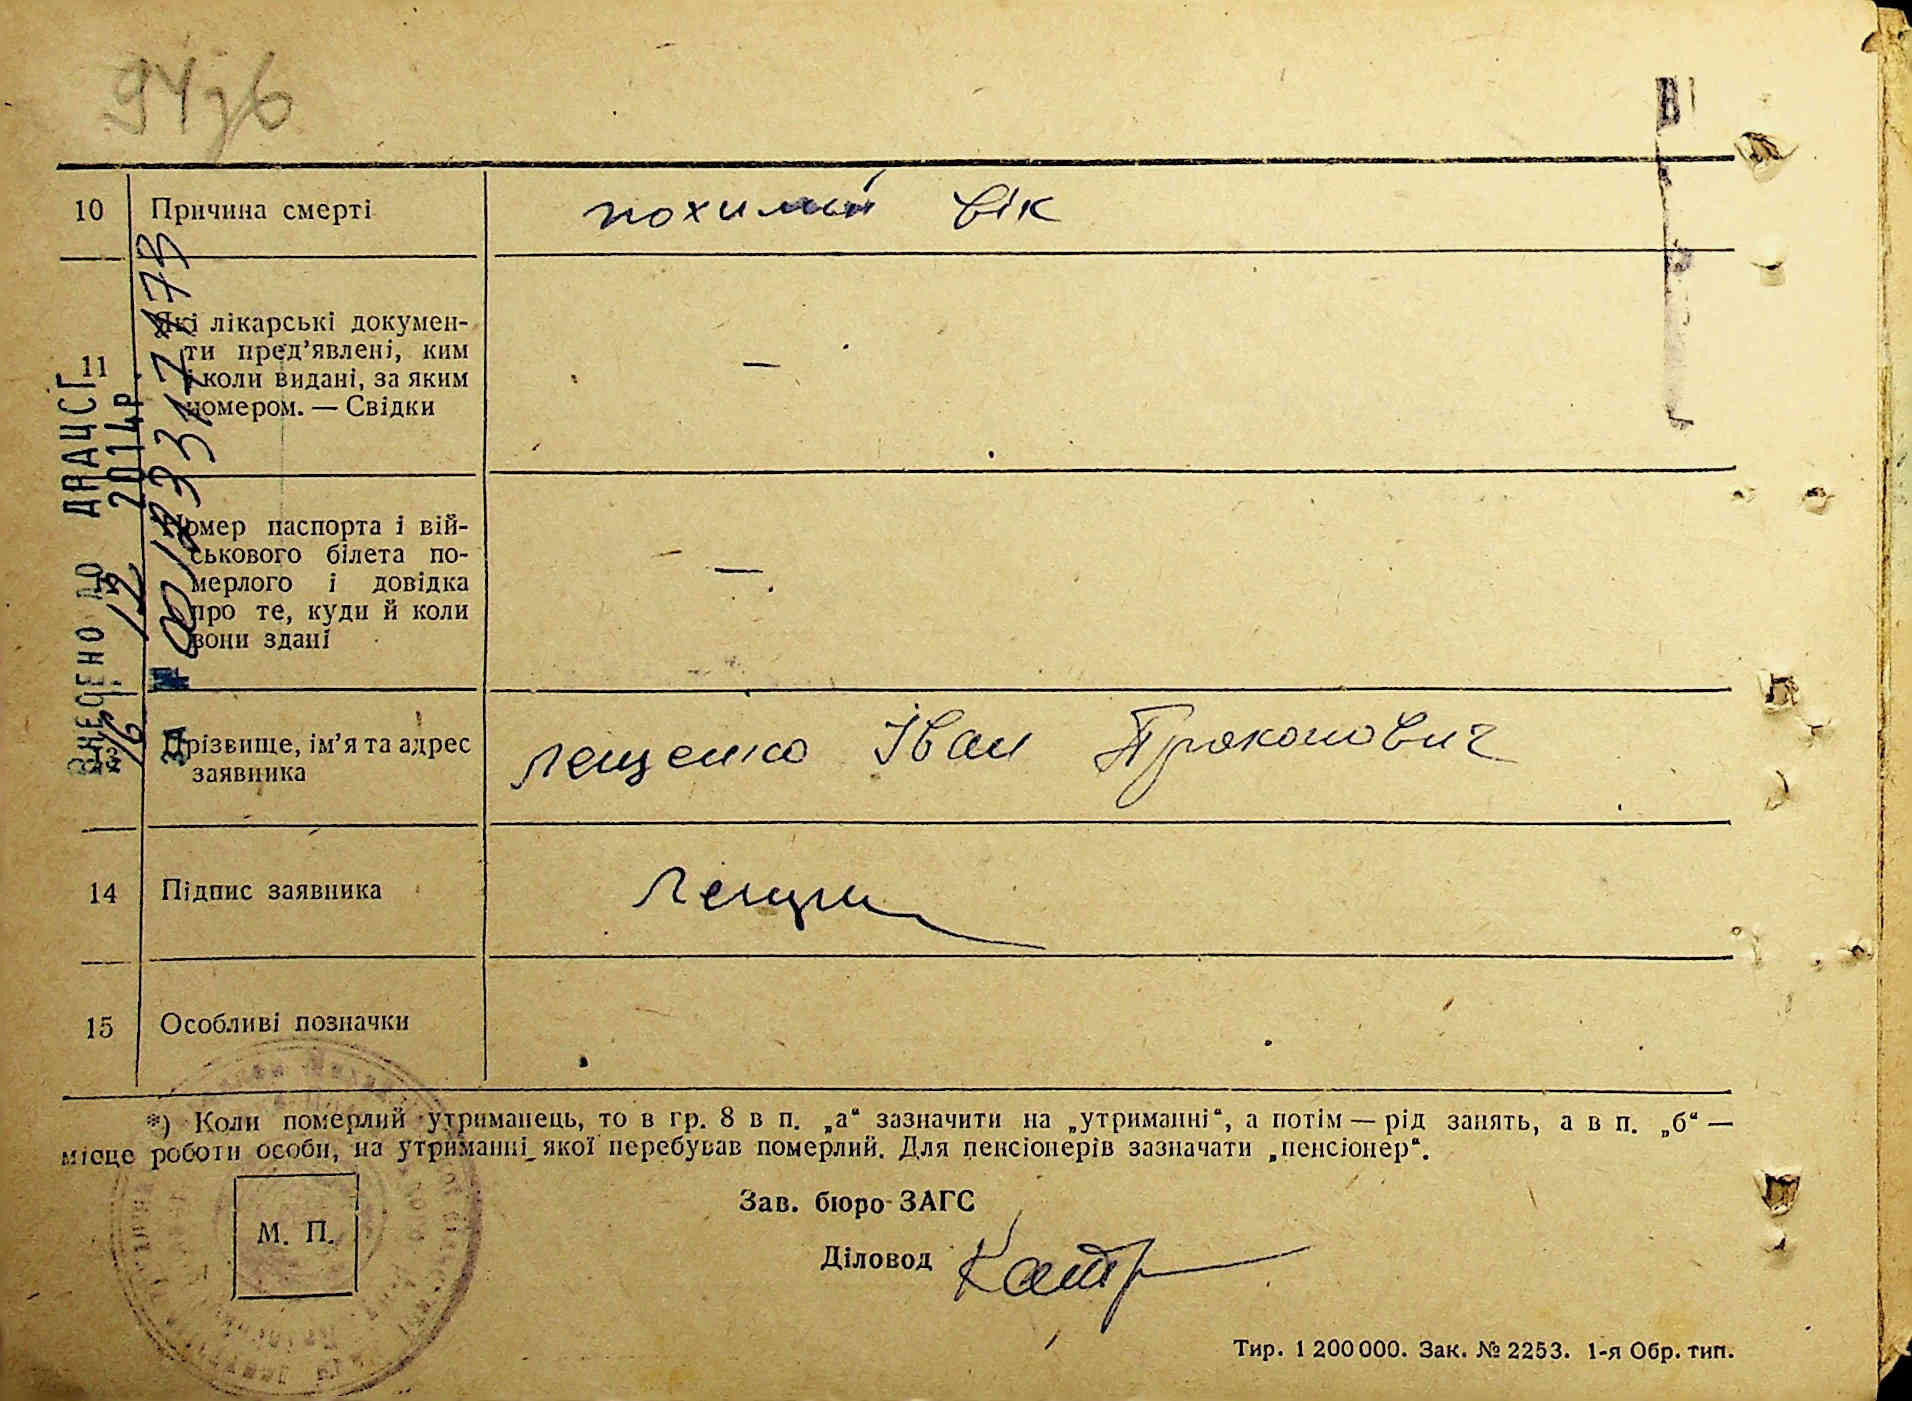 94зв
10 Причина смерті похилий вік
11 Які лікарські докумен-
ти пред’явлені, ким
і коли видані, за яким
номером. — Свідки —
Номер паспорта і вій-
ськового білета по-
мерлого і довідка
про те, куди й коли
вони здані —
Прізвище, ім’я та адрес
заявника Лещенко Іван Прокопович
14 Підпис заявника
15 Особливі позначки
*) Коли померлий утриманець, то в гр. 8 в п. „а“ зазначити на „утриманні“, а потім — рід занять, а в п. „б“ —
місце роботи особи, на утриманні якої перебував померлий. Для пенсіонерів зазначати „пенсіонер“.
М. П.
Зав. бюро ЗАГС
Діловод
Тир. 1 200 000. Зак. № 2253. 1-я Обр. тип.
Внесено до ДРАЦСГ
16 12 2014р.